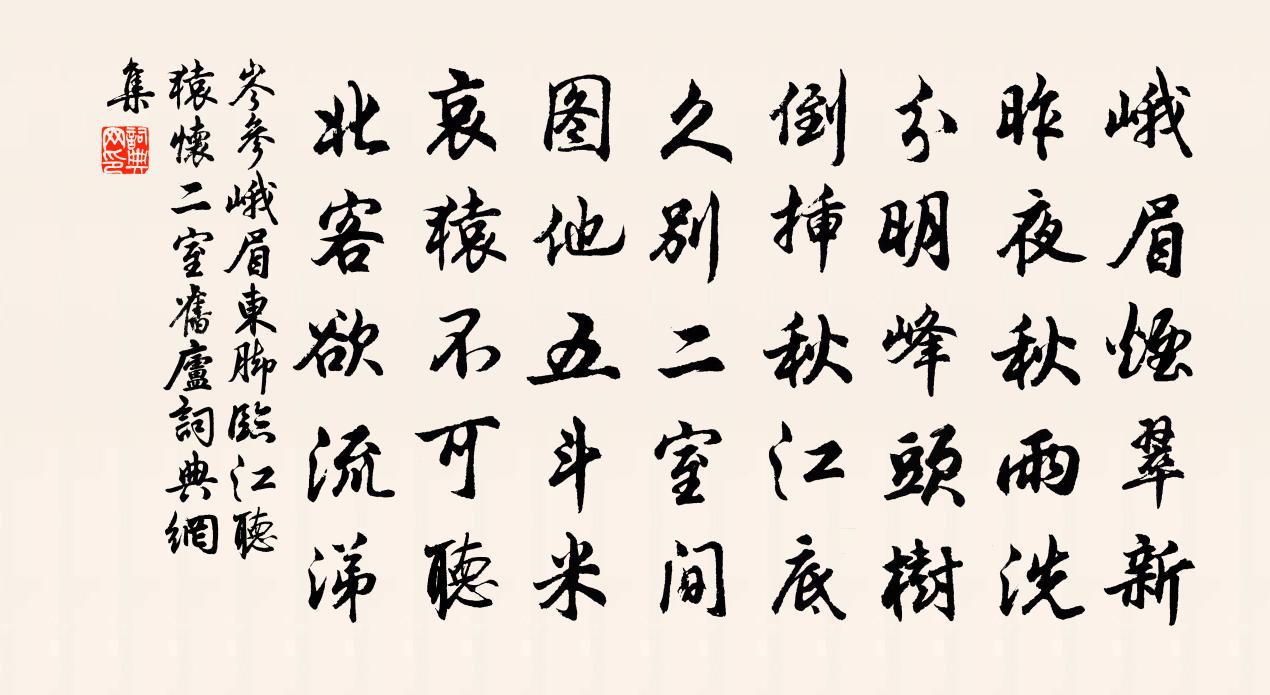 峨眉煙翠新
昨夜秋雨洗
分明峰頭樹
倒插秋江底
久別二室间
图他五斗米
哀猿不可聽
北客欲流涕
岑參峨眉東脚臨江聽
猿懷二室舊廬詞典網
集
詞典网印